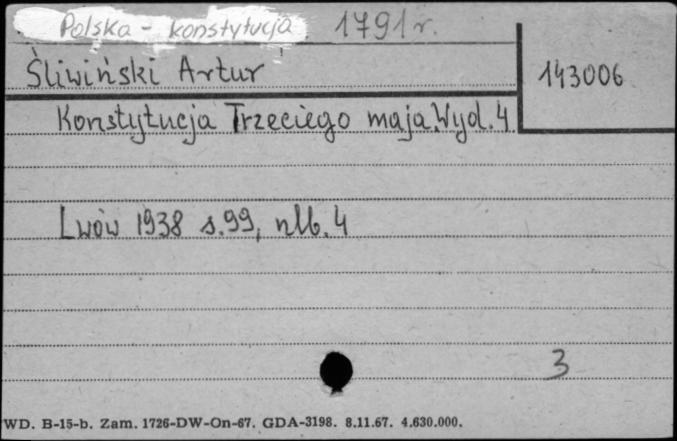 Polska - konstytucja 1791 r.
Śliwiński Artur
143006
Konstytucja Trzeciego maja. Wyd. 4
Lwów 1938 s. 99, nlb. 4
3
WD. B-15-b. Zam. 1726-DW-On-67. GDA-3198. 8.11.67. 4.630.000.